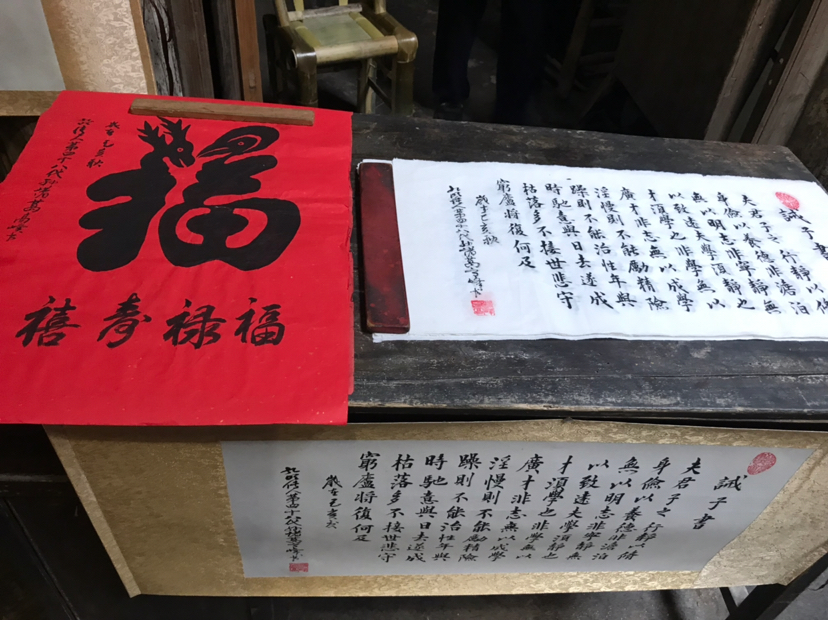 歲在己亥秋
孔明後人第四十八代孙諸葛高峰书
福
福禄寿禧
誡子書
夫君子之行静以修
身儉以養德非澹泊
無以明志非寧靜無
以致遠夫學須靜也
才須學也非學無以
廣才非志無以成學
淫慢則不能勵精險
躁則不能治性年與
時馳意與日去遂成
枯落多不接世悲守
窮廬將復何及
歲在己亥秋
孔明後人第四十八代孙諸葛高峰书
誡子書
夫君子之行静以修
身儉以養德非澹泊
無以明志非寧靜無
以致遠夫學須靜也
才須學也非學無以
廣才非志無以成學
淫慢則不能勵精險
躁則不能治性年與
時馳意與日去遂成
枯落多不接世悲守
窮廬將復何及
歲在己亥秋
孔明後人第四十八代孙諸葛高峰书